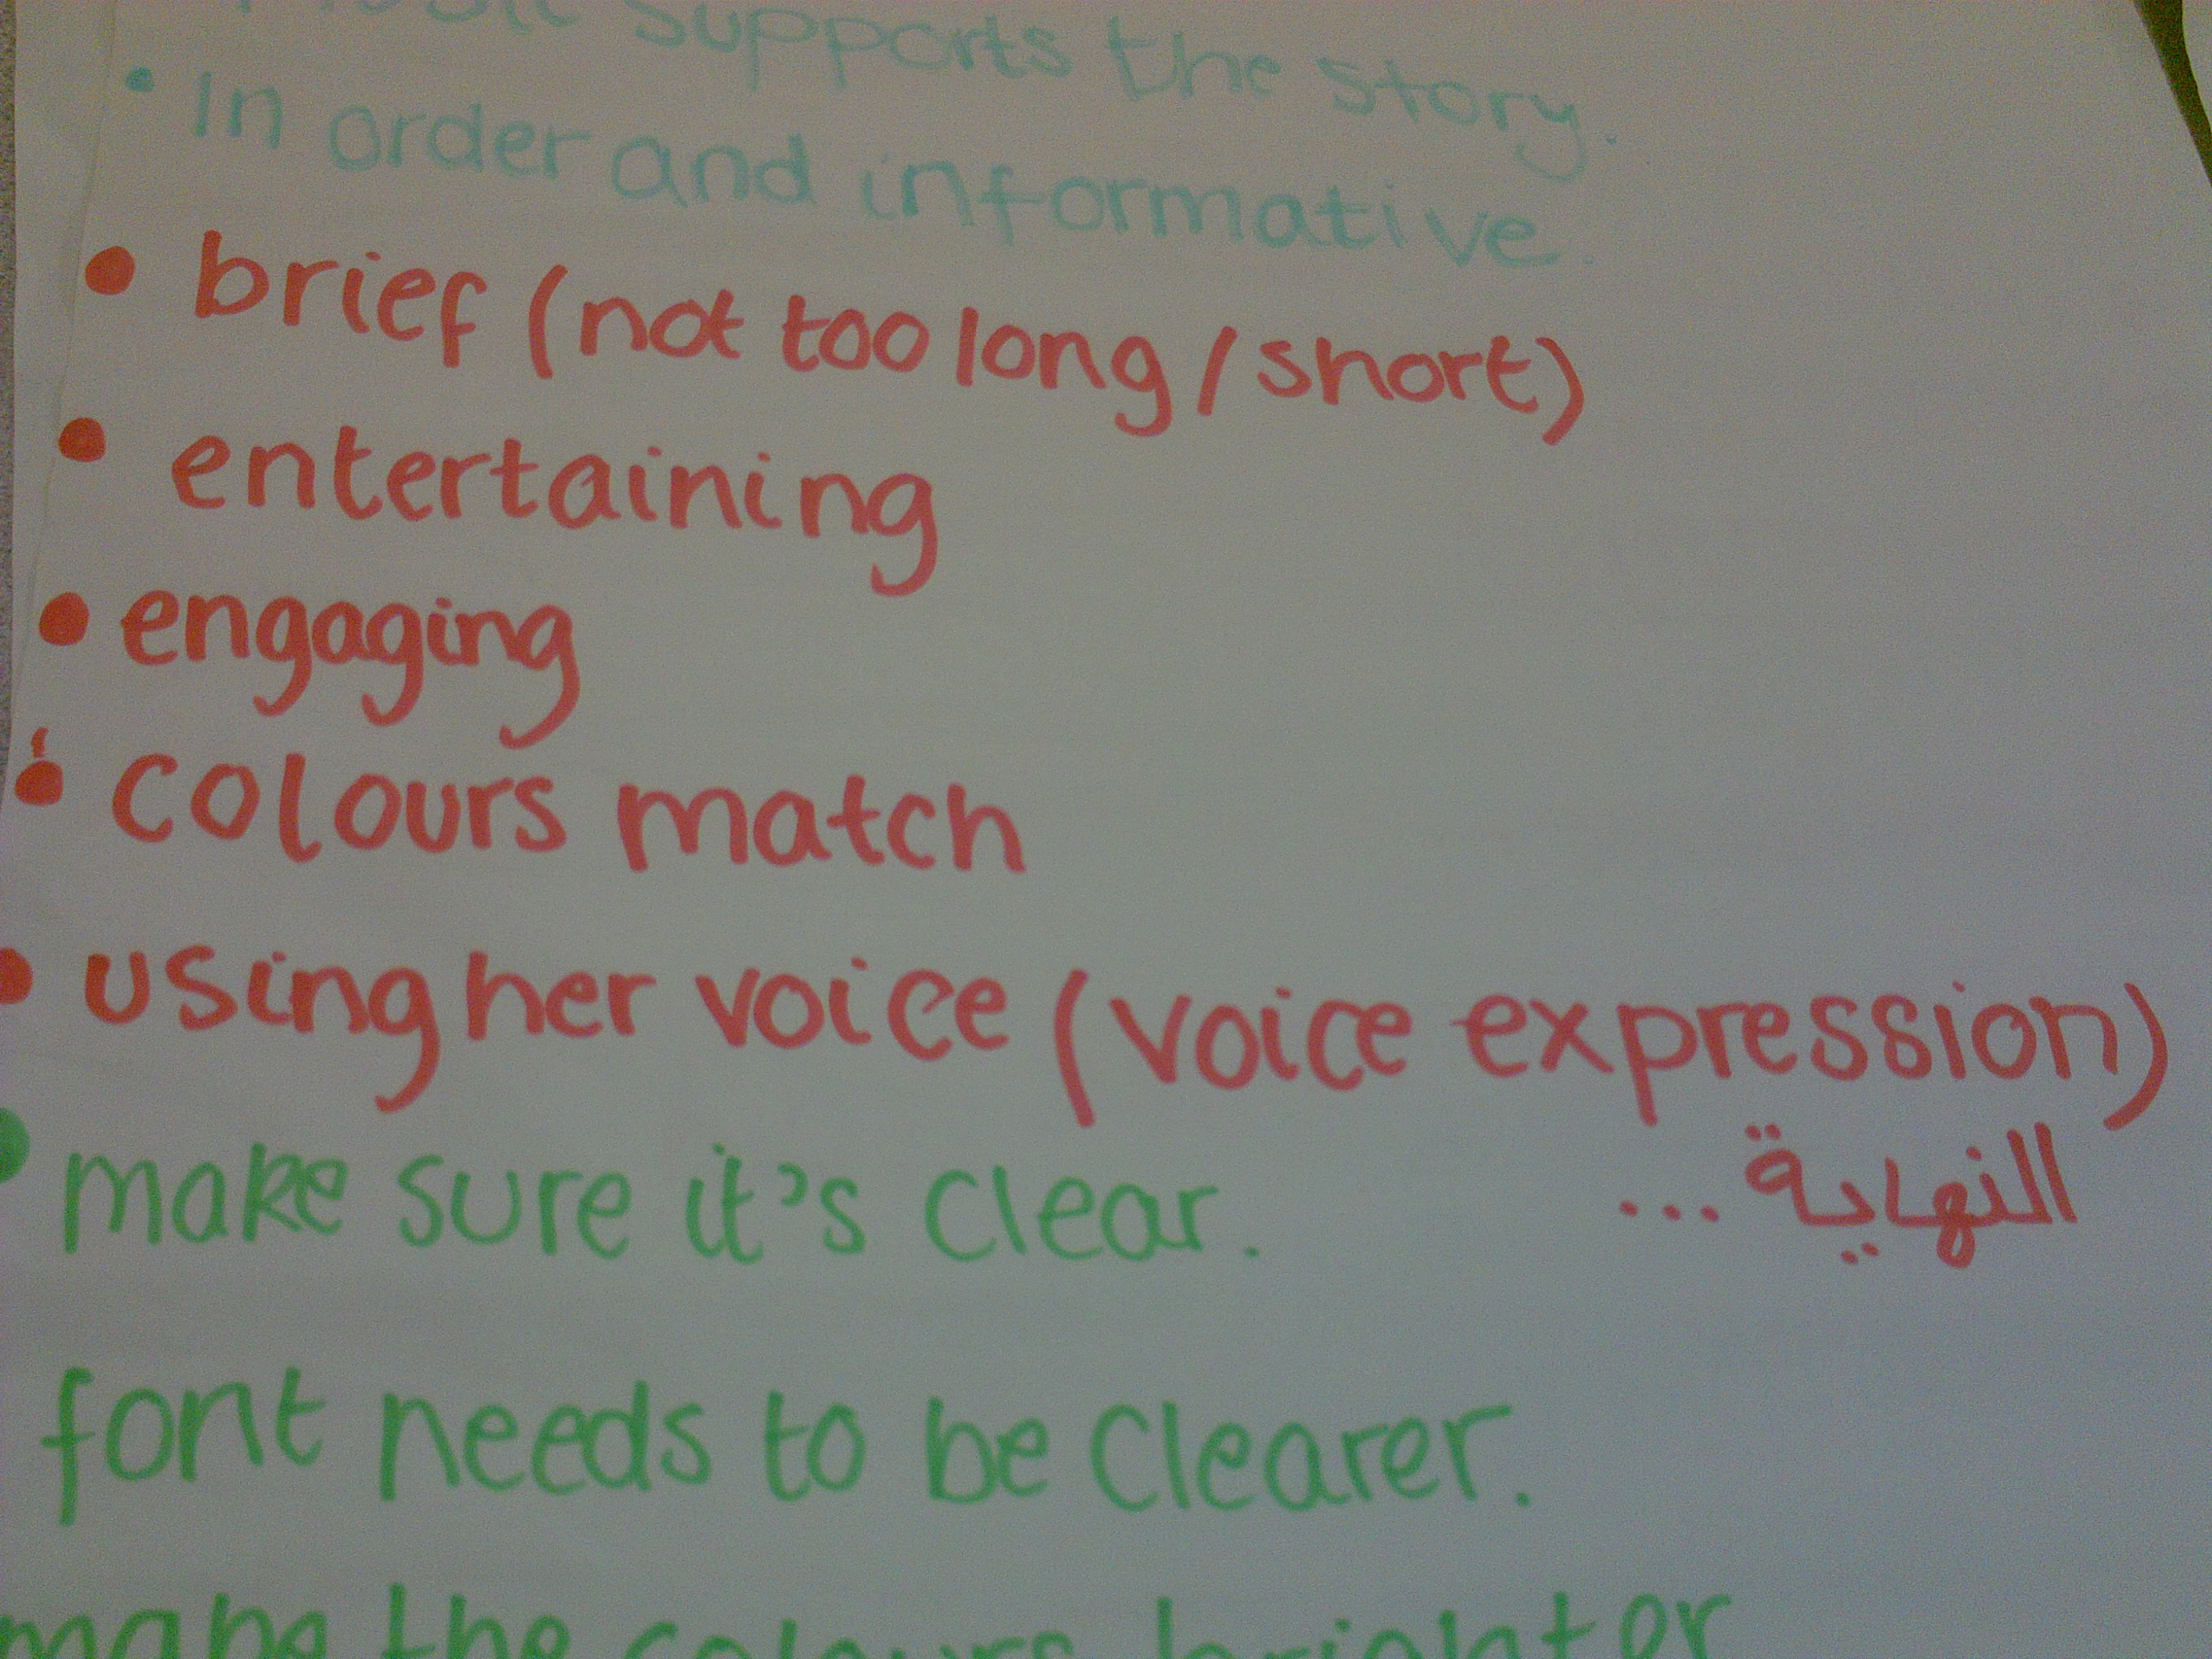 supports the story.
• In order and informative.
• brief (not too long / short)
• entertaining
• engaging
• colours match
• using her voice (voice expression)
النهاية...
• make sure it's clear.
font needs to be clearer.
the colours brighter